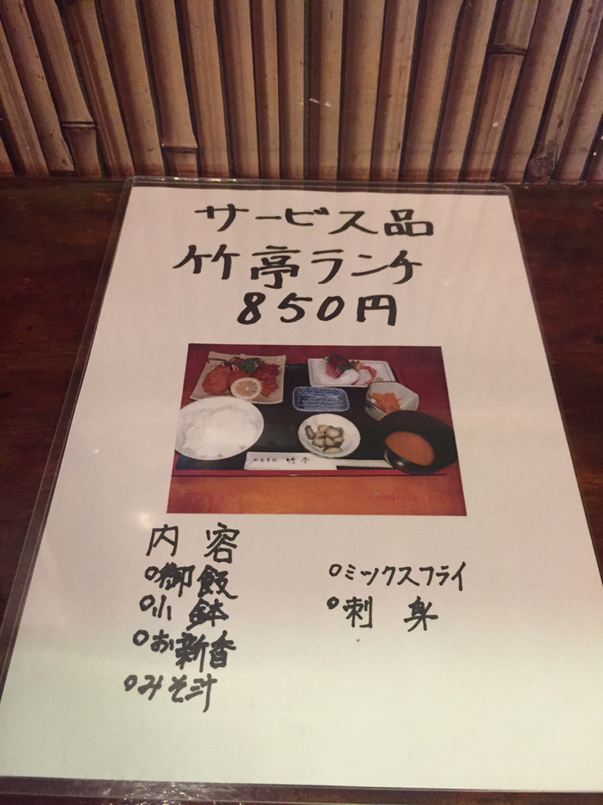 サービス品
竹亭ランチ
850円
竹亭
内容
○御飯
○小鉢
○お新香
○みそ汁
○ミックスフライ
○刺身